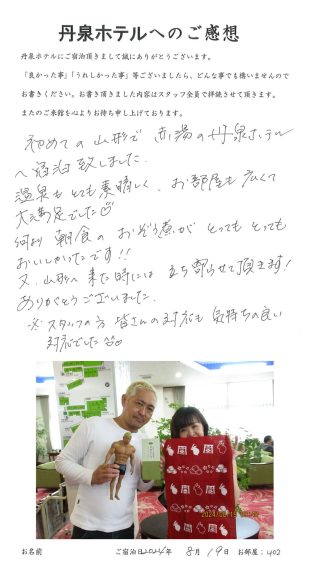 丹泉ホテルへのご感想
丹泉ホテルにご宿泊頂きまして誠にありがとうございます。
「良かった事」「うれしかった事」等ございましたら、どんな事でも構いませんので
お書きください。お書き頂きました内容はスタッフ全員で拝読させて頂きます。
またのご来館を心よりお待ち申し上げております。
初めての山形で赤湯の丹泉ホテル
へ宿泊致しました.
温泉もとても素晴しく、お部屋も広くて
大満足でした
何より朝食のおぞう煮がとってもとっても
おいしかったです!!
又、山形へ来た時には立ち寄らせて頂きます!
ありがとうございました.
※スタッフの方皆さんの対応も気持ちの良い
対応でした
お名前 ご宿泊日2024年 8月19日 お部屋:402